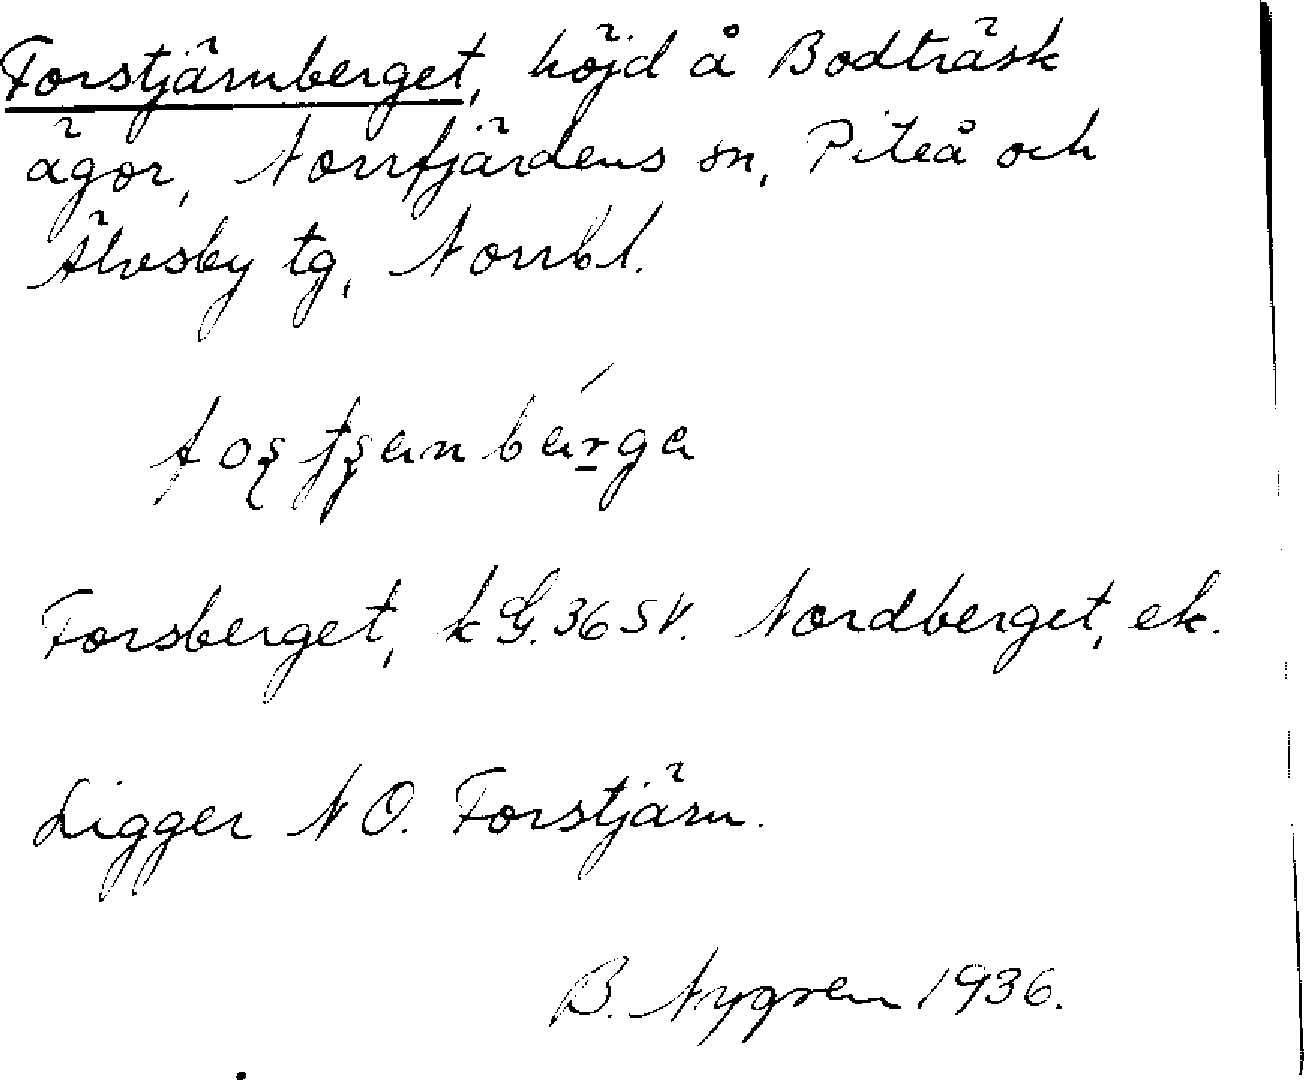 Forstjärnberget, höjd å Bodträsk
ägor, Norrfjärdens sn, Piteå och
Älvsby tg, Norrbl.
Forsberget, k G. 36 SV. Nordberget, ek.
Ligger NO. Forstjärn.
B. Nygren 1936.